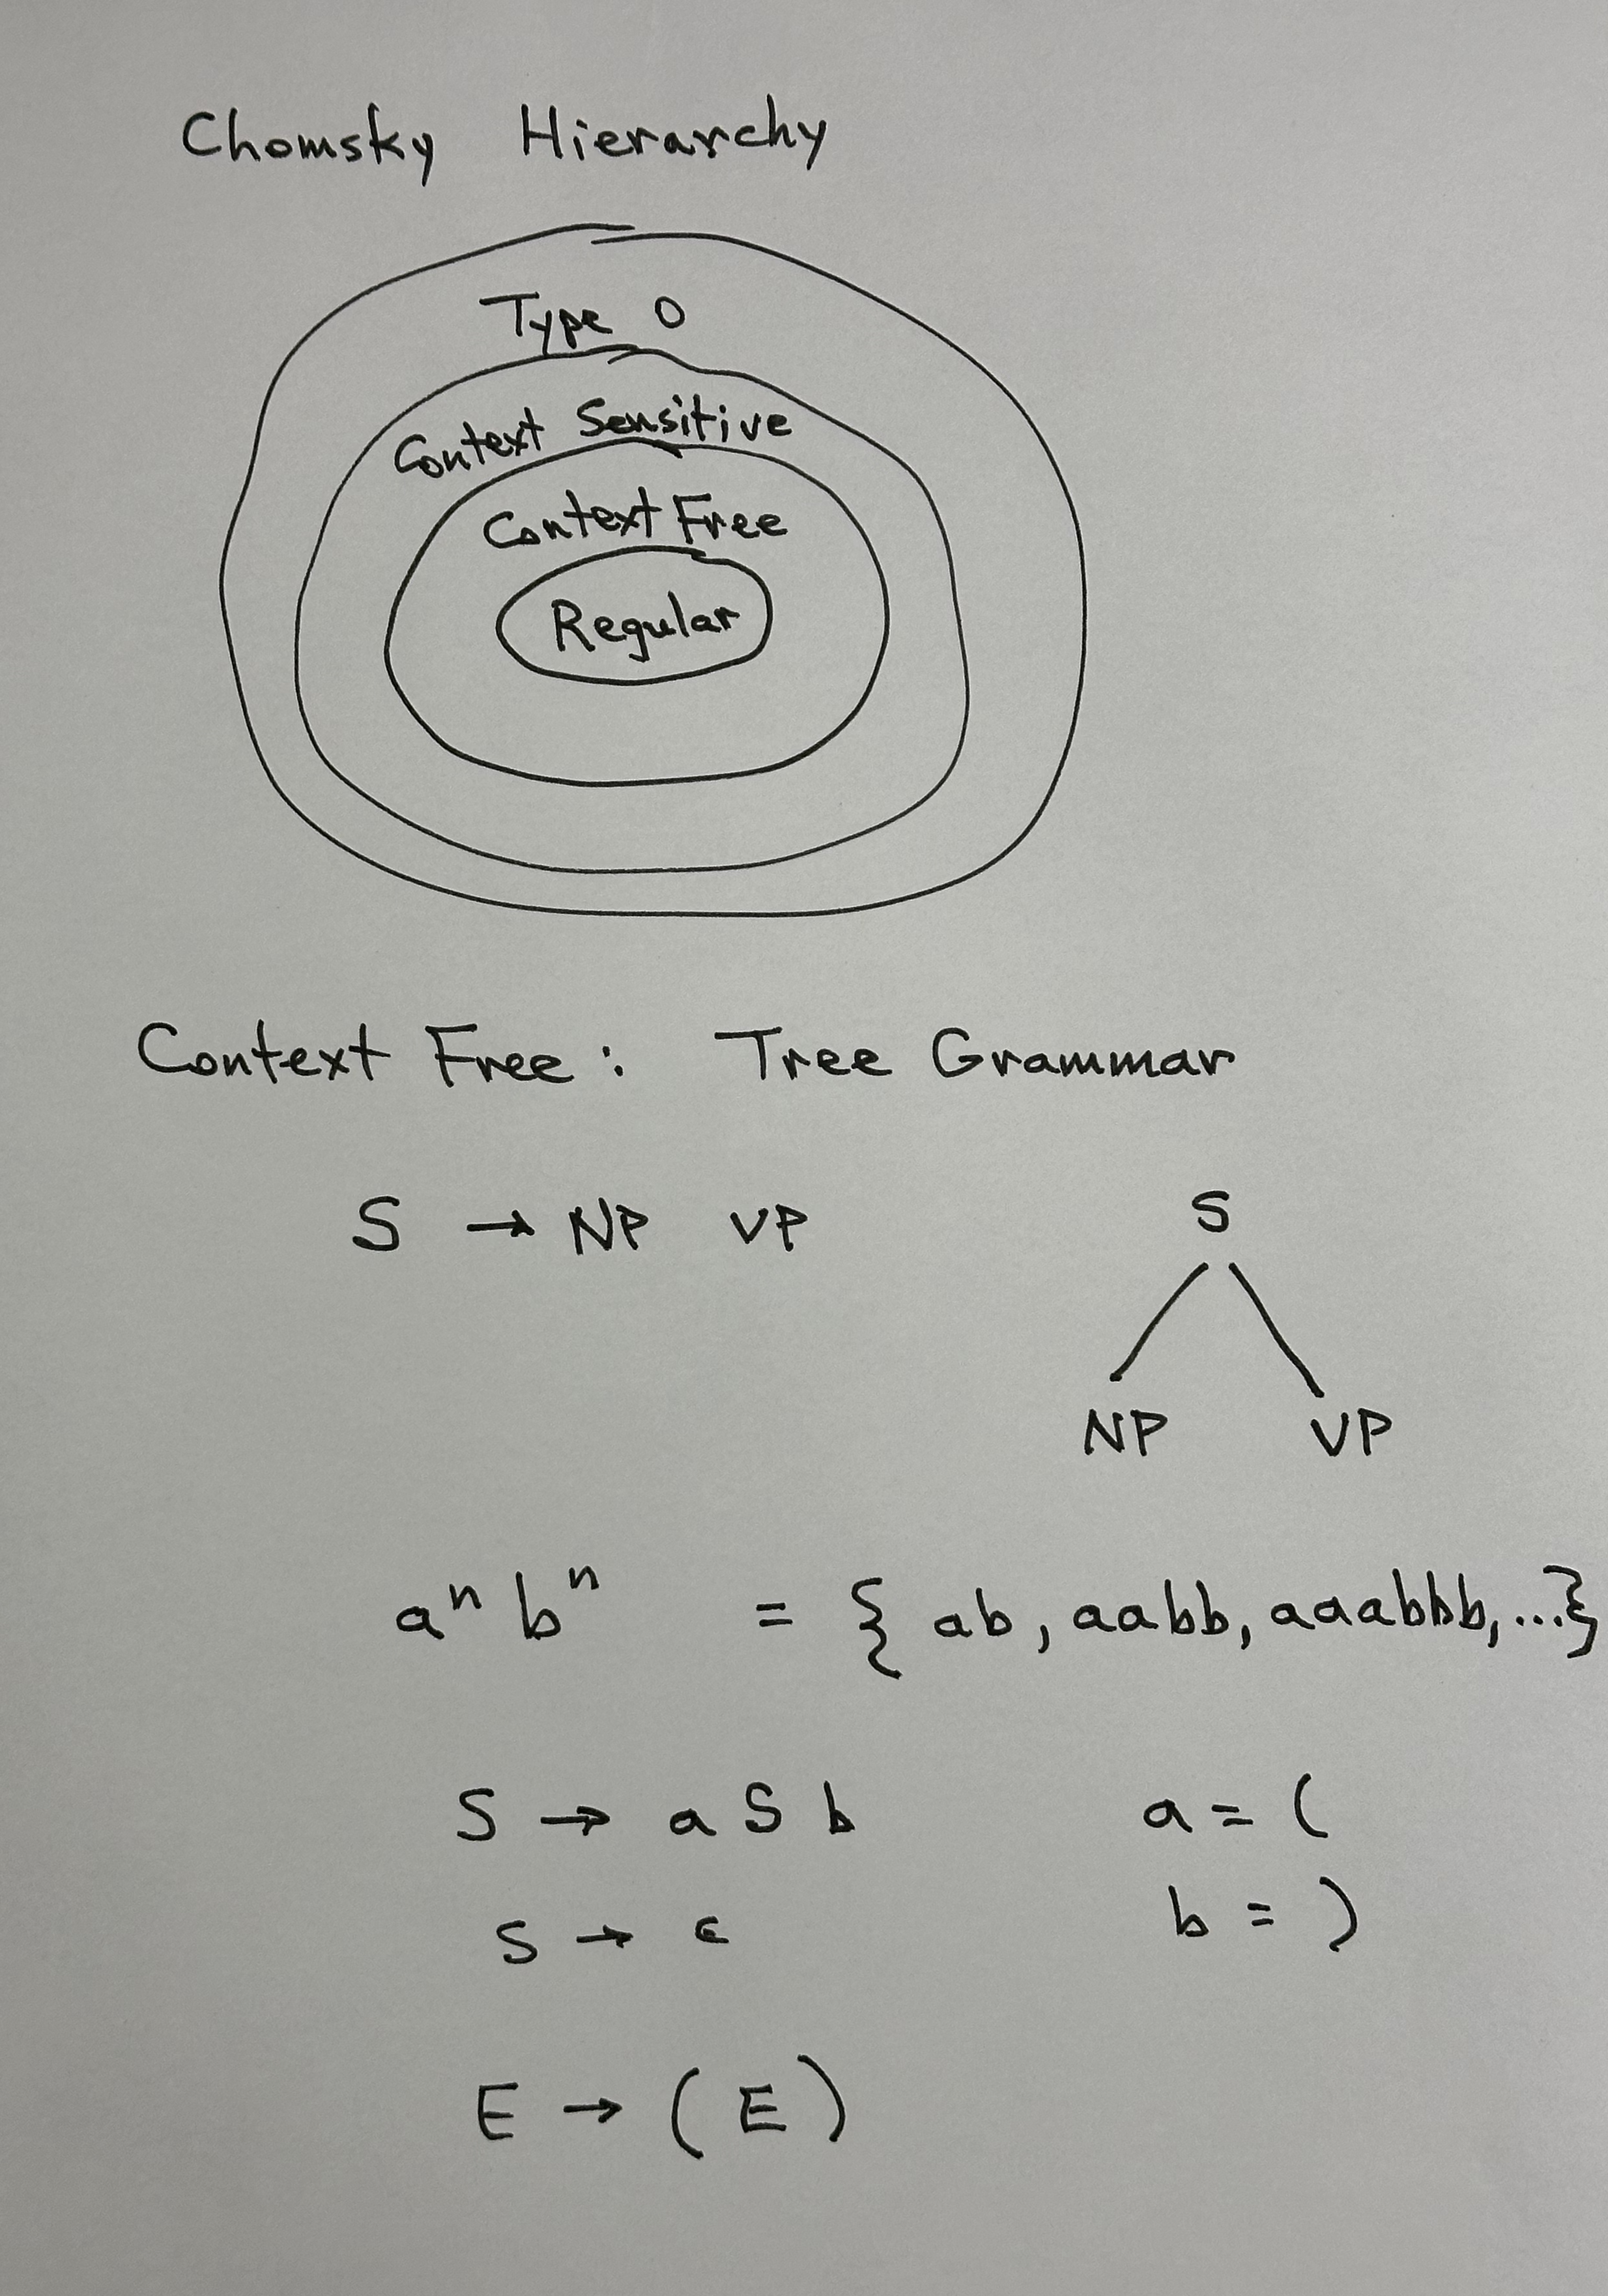 Chomsky Hierarchy
Type 0
Context Sensitive
Context Free
Regular
Context Free: Tree Grammar
S → NP VP
S
NP VP
aⁿ bⁿ = { ab, aabb, aaabbb, ...}
S → a S b a = (
S → ε b = )
E → ( E )